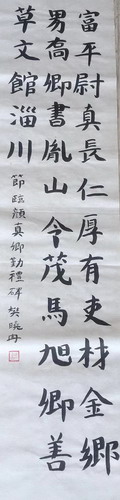 富平尉真長仁厚有吏材金鄉
男喬卿書胤山令茂馬旭卿善
草文館淄川
節臨顏真卿勤禮碑 樊晓丹